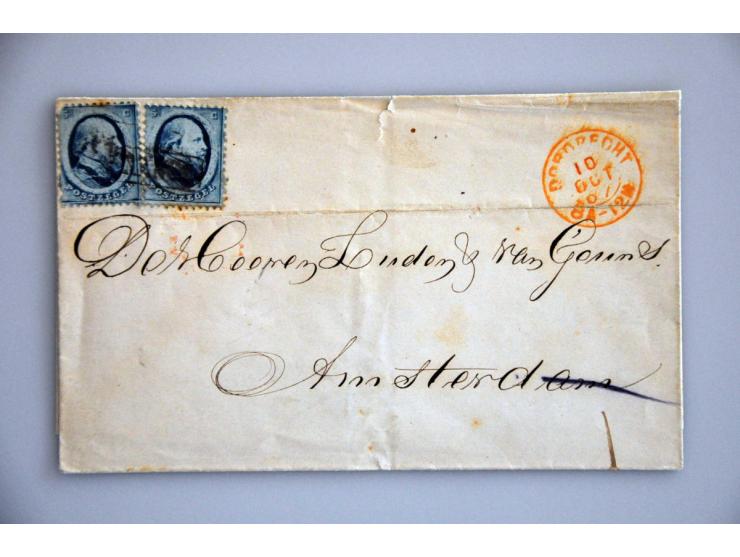 5 C
5 C
POSTZEGEL
POSTZEGEL
DORDRECHT
10
OCT
67
8-12M
De Hr Cooven, Luden & van Geuns.
Amsterdam